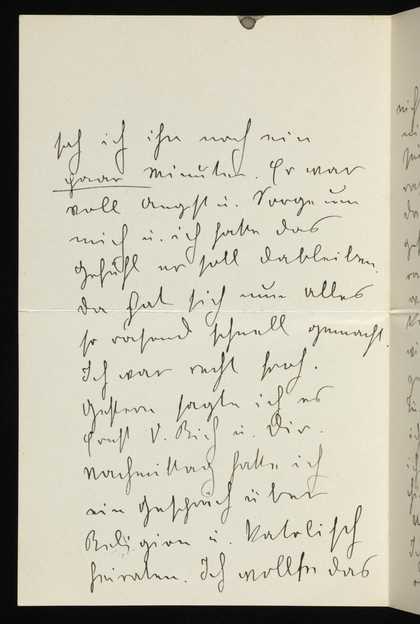 sah ich ihn noch ein
paar Minuten. Er war
voll Angst u. Sorge um
mich u. ich hatte das
Gefühl er soll dableiben.
da hat sich nun alles
so rasend schnell gemacht.
Ich war recht froh.
Gestern sagte ich es
Ernst V. Rich u. Dir.
Nachmittag hatte ich
ein Gespräch über
Religion u. katolisch
heiraten. Ich wollte das